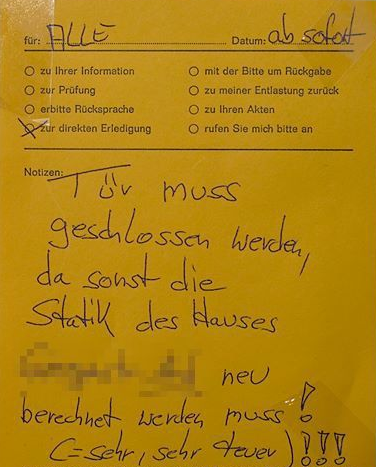 für: ALLE Datum: ab sofort
zu Ihrer Information mit der Bitte um Rückgabe
zur Prüfung zu meiner Entlastung zurück
erbitte Rücksprache zu Ihren Akten
zur direkten Erledigung rufen Sie mich bitte an
Notizen: Tür muss
geschlossen werden,
da sonst die
Statik des Hauses
neu
berechnet werden muss!
(=sehr, sehr teuer)!!!